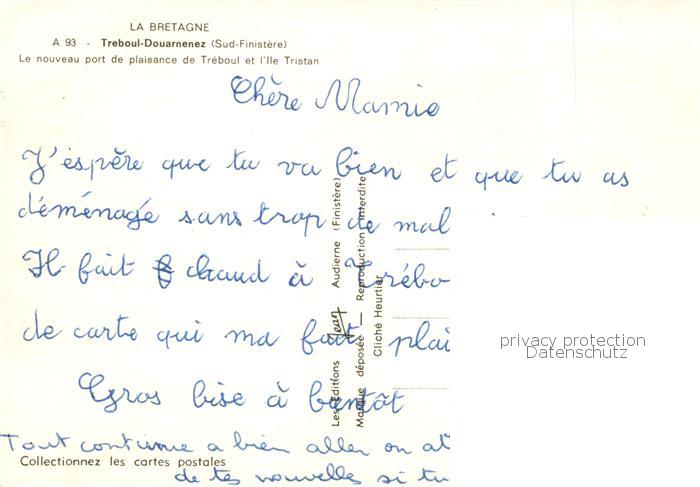 LA BRETAGNE
A 93 - Treboul-Douarnenez (Sud-Finistère)
Le nouveau port de plaisance de Tréboul et l'Ile Tristan
Chère Mamie
J'éspère que tu va bien et que tu as
déménagé sans trop de mal
Il fait chaud à Trébo
de carte qui ma fait plai
Gros bise à bentôt
Tout continue a bien aller on at
de tes nouvelles si tu
Collectionnez les cartes postales
Les Editions Jean Audierne (Finistère)
Marque déposée — Reproduction interdite
Cliché Heurtier
privacy protection
Datenschutz